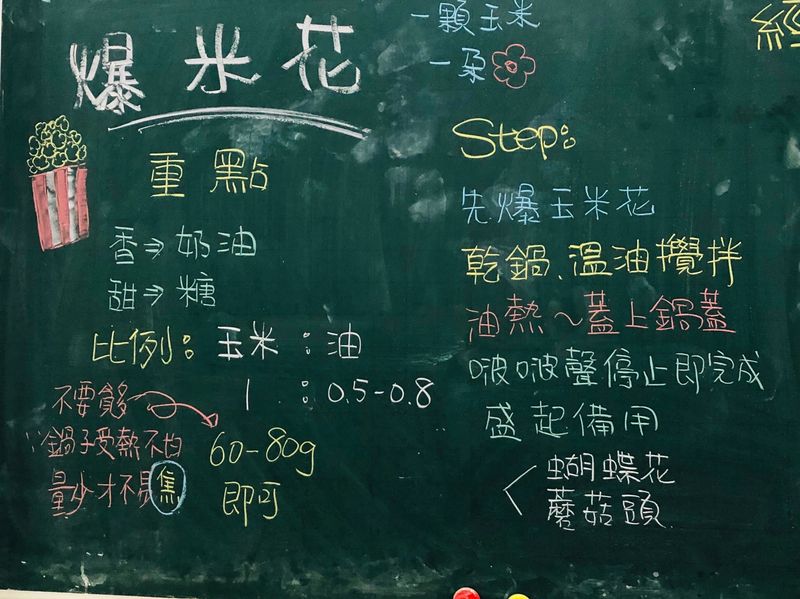 爆米花
重點
香⇒奶油
甜⇒糖
比例：玉米：油
1：0.5-0.8
不要貪多
∵鍋子受熱不均
量少才不易焦
60-80g
即可
一顆玉米
一朵
Step:
先爆玉米花
乾鍋、溫油攪拌
油熱～蓋上鍋蓋
啵啵聲停止即完成
盛起備用
蝴蝶花
蘑菇頭
經